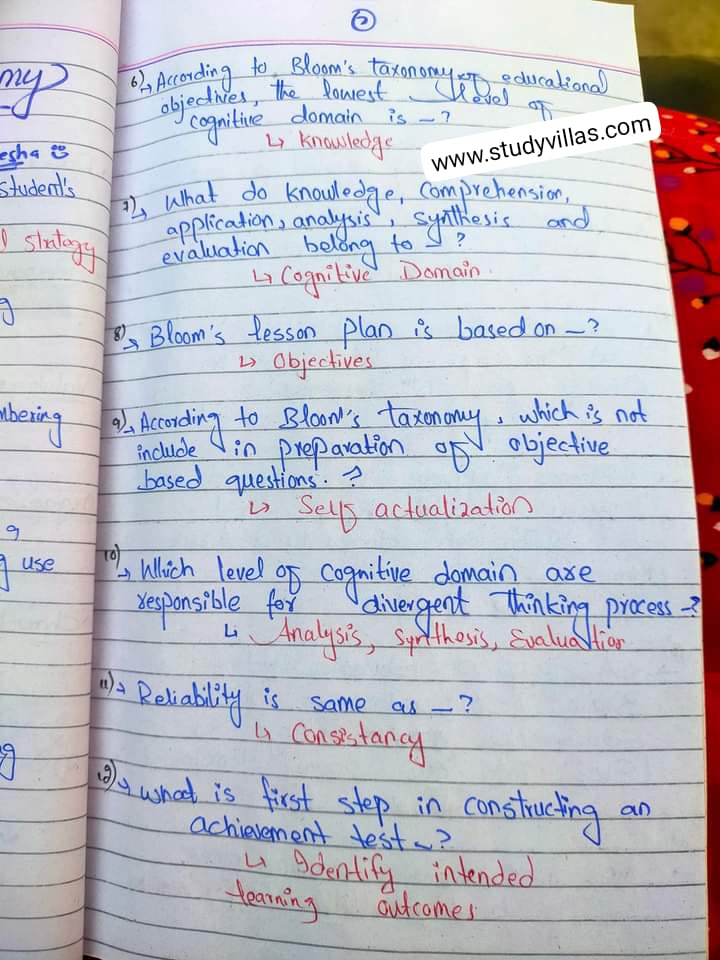 ②
my
esha
Student's
strategy
mbering
g
use
6) → According to Bloom's taxonomy of educational
objectives, the lowest level of
cognitive domain is —?
↳ Knowledge
www.studyvillas.com
7) → What do knowledge, Comprehension,
application, analysis, synthesis and
evaluation belong to —?
↳ Cognitive Domain.
8) → Bloom's lesson plan is based on —?
↳ Objectives
9) → According to Bloom's taxonomy, which is not
include in preparation of objective
based questions. ?
↳ Self actualization
10) → Which level of cognitive domain are
responsible for divergent thinking process —?
↳ Analysis, Synthesis, Evaluation
11) → Reliability is same as —?
↳ Consistancy
12) → what is first step in constructing an
achievement test —?
↳ Identify intended
learning outcomes